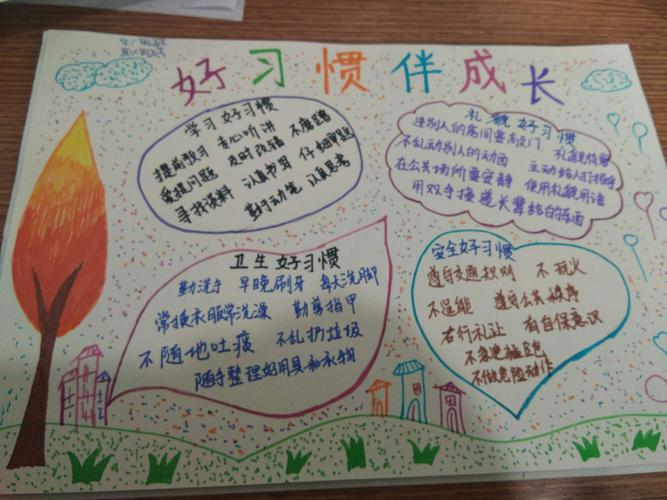 好习惯伴成长
学习好习惯
提前预习 专心听讲 不磨蹭
爱提问题 及时改错 仔细审题
寻找资料 认真书写
勤动笔 认真思考
礼貌好习惯
进别人的房间要敲门 礼貌待客
不乱动别人的东西 主动给人打招呼
在公共场所要安静 使用礼貌用语
用双手接递长辈给的东西
卫生好习惯
勤洗手 早晚刷牙 每天洗脚
常换衣服常洗澡 勤剪指甲
不随地吐痰 不乱扔垃圾
随手整理好用具和衣物
安全好习惯
遵守交通规则 不玩火
不逞能 遵守公共秩序
右行礼让 有自保意识
不做危险动作